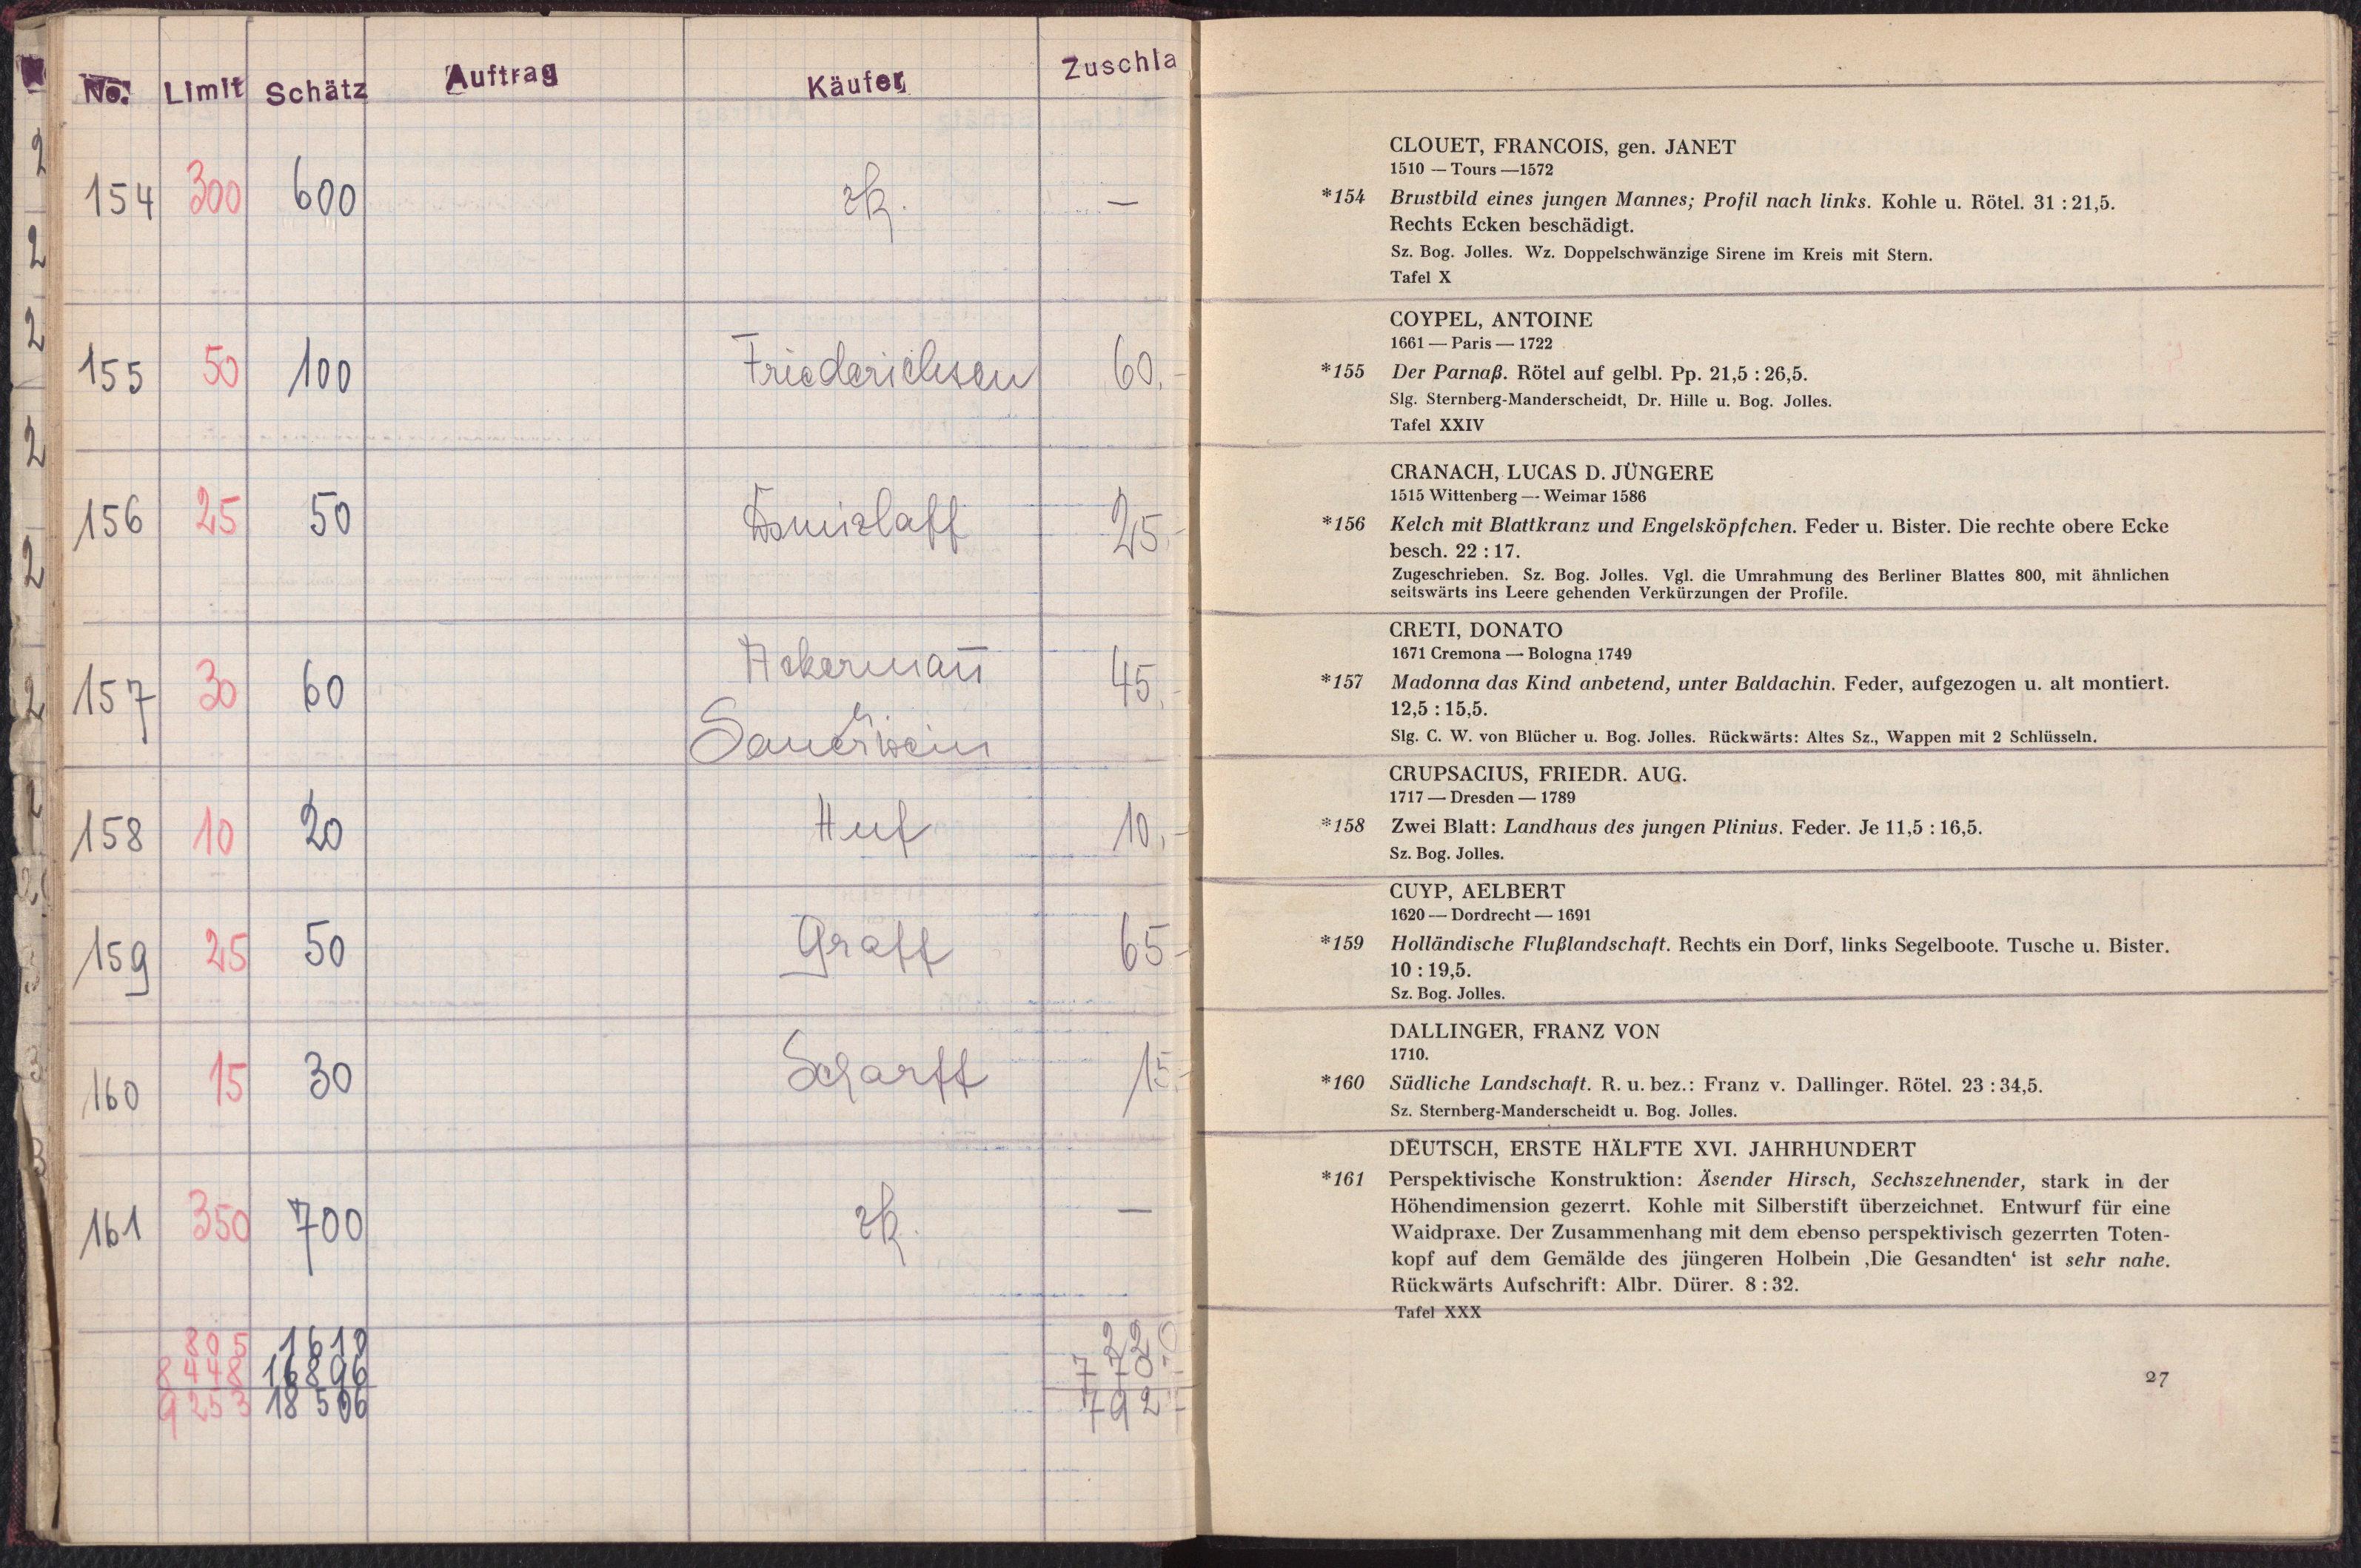 No. Limit Schätz Auftrag Käufer Zuschla
154 300 600 zk. —
155 50 100 Friederichsen 60.-
156 25 50 Domizlaff 25.-
157 30 60 Ackermañ 45.-
Sauerwein
158 10 20 Huf 10.-
159 25 50 Graff 65.-
160 15 30 Scharff 15.-
161 350 700 zk. —
805 1610 220
8448 16896
9253 18506
CLOUET, FRANCOIS, gen. JANET
1510 — Tours —1572
*154 Brustbild eines jungen Mannes; Profil nach links. Kohle u. Rötel. 31 : 21,5.
Rechts Ecken beschädigt.
Sz. Bog. Jolles. Wz. Doppelschwänzige Sirene im Kreis mit Stern.
Tafel X
COYPEL, ANTOINE
1661 — Paris — 1722
*155 Der Parnaß. Rötel auf gelbl. Pp. 21,5 : 26,5.
Slg. Sternberg-Manderscheidt, Dr. Hille u. Bog. Jolles.
Tafel XXIV
CRANACH, LUCAS D. JÜNGERE
1515 Wittenberg — Weimar 1586
*156 Kelch mit Blattkranz und Engelsköpfchen. Feder u. Bister. Die rechte obere Ecke
besch. 22 : 17.
Zugeschrieben. Sz. Bog. Jolles. Vgl. die Umrahmung des Berliner Blattes 800, mit ähnlichen
seitswärts ins Leere gehenden Verkürzungen der Profile.
CRETI, DONATO
1671 Cremona — Bologna 1749
*157 Madonna das Kind anbetend, unter Baldachin. Feder, aufgezogen u. alt montiert.
12,5 : 15,5.
Slg. C. W. von Blücher u. Bog. Jolles. Rückwärts: Altes Sz., Wappen mit 2 Schlüsseln.
CRUPSACIUS, FRIEDR. AUG.
1717 — Dresden — 1789
*158 Zwei Blatt: Landhaus des jungen Plinius. Feder. Je 11,5 : 16,5.
Sz. Bog. Jolles.
CUYP, AELBERT
1620 — Dordrecht — 1691
*159 Holländische Flußlandschaft. Rechts ein Dorf, links Segelboote. Tusche u. Bister.
10 : 19,5.
Sz. Bog. Jolles.
DALLINGER, FRANZ VON
1710.
*160 Südliche Landschaft. R. u. bez.: Franz v. Dallinger. Rötel. 23 : 34,5.
Sz. Sternberg-Manderscheidt u. Bog. Jolles.
DEUTSCH, ERSTE HÄLFTE XVI. JAHRHUNDERT
*161 Perspektivische Konstruktion: Äsender Hirsch, Sechszehnender, stark in der
Höhendimension gezerrt. Kohle mit Silberstift überzeichnet. Entwurf für eine
Waidpraxe. Der Zusammenhang mit dem ebenso perspektivisch gezerrten Toten-
kopf auf dem Gemälde des jüngeren Holbein ‚Die Gesandten‘ ist sehr nahe.
Rückwärts Aufschrift: Albr. Dürer. 8 : 32.
Tafel XXX
27